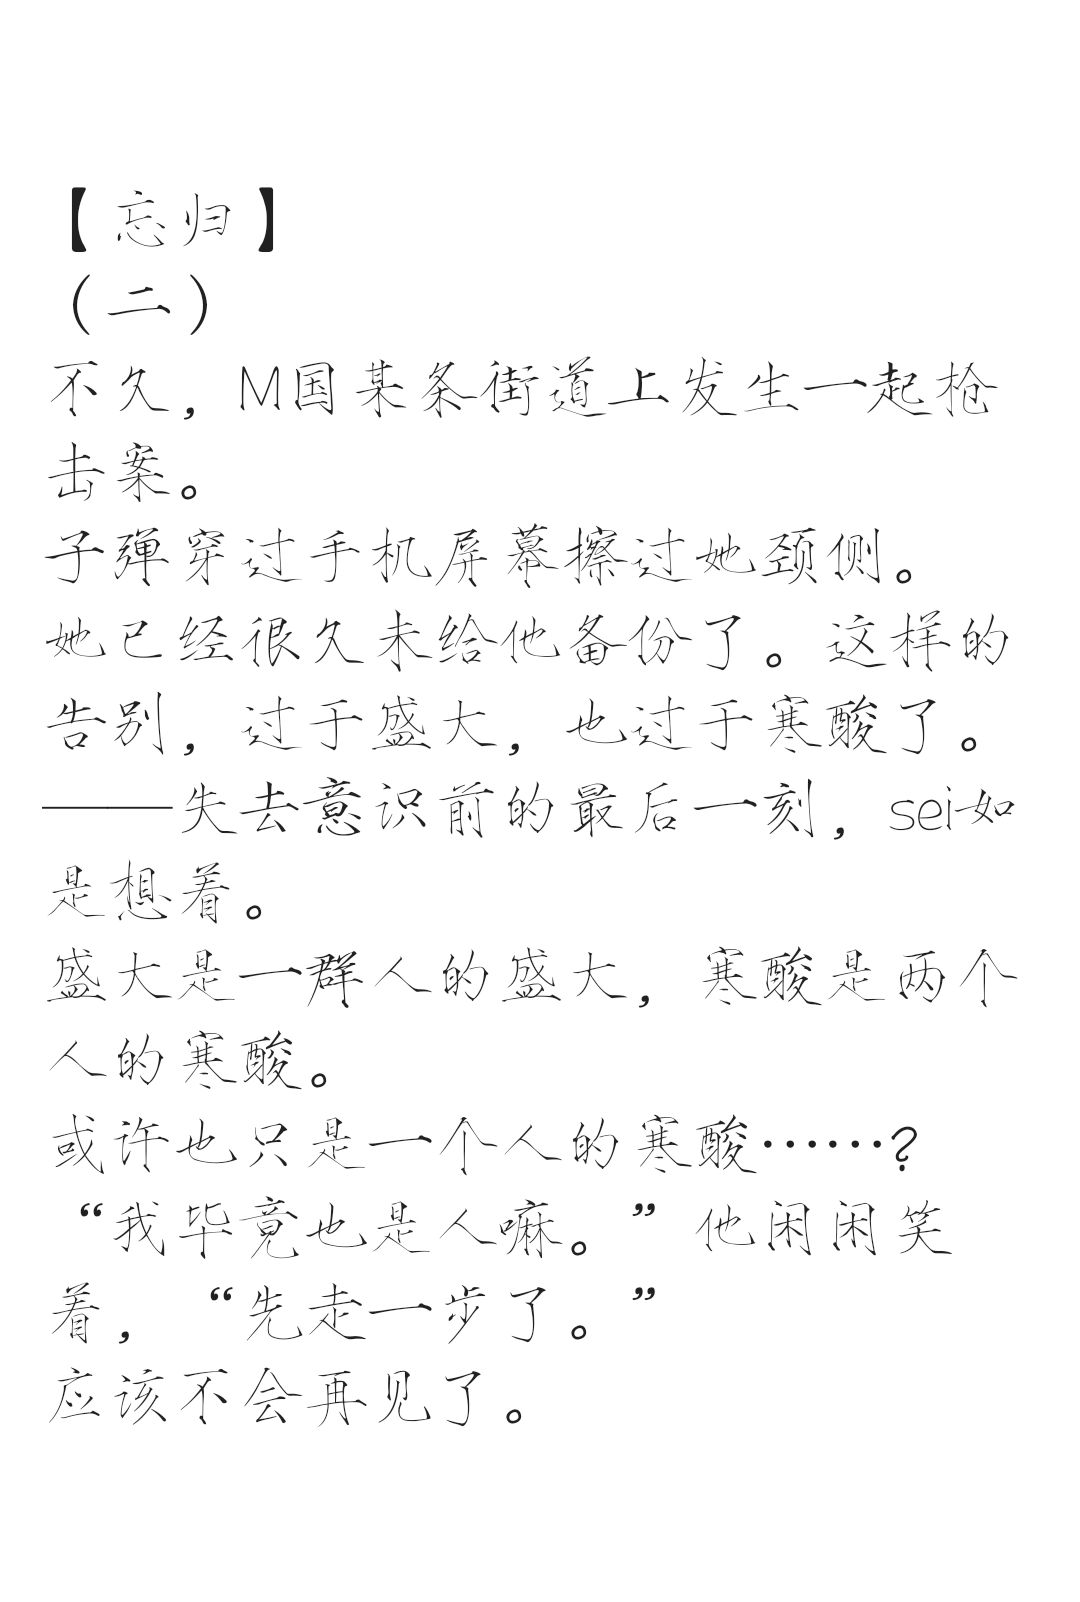 【忘归】
（二）
不久，M国某条街道上发生一起枪
击案。
子弹穿过手机屏幕擦过她颈侧。
她已经很久未给他备份了。这样的
告别，过于盛大，也过于寒酸了。
——失去意识前的最后一刻，sei如
是想着。
盛大是一群人的盛大，寒酸是两个
人的寒酸。
或许也只是一个人的寒酸……？
“我毕竟也是人嘛。”他闲闲笑
着，“先走一步了。”
应该不会再见了。